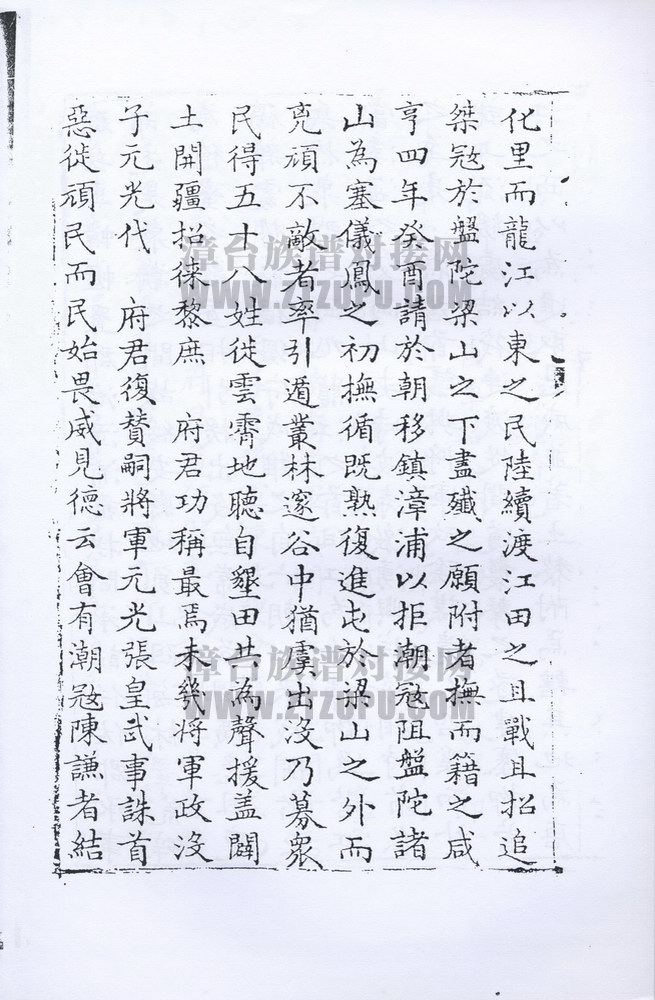 化里而龍江以東之民陸續渡江田之且戰且招追
桀寇於盤陀梁山之下盡殲之願附者撫而籍之咸
亨四年癸酉請於朝移鎮漳浦以拒潮寇阻盤陀諸
山為塞儀鳳之初撫循既熟復進屯於梁山之外而
兇頑不敵者率引遁叢林邃谷中猶虞出沒乃募眾
民得五十八姓徙雲霄地聽自墾田共為聲援盖闢
土開疆招徠黎庶　府君功稱最焉未幾將軍政沒
子元光代　府君復贊嗣將軍元光張皇武事誅首
惡徙頑民而民始畏威見德云會有潮寇陳謙者結
漳台族谱对接网
WWW.ZTZUPU.COM
漳台族谱对接网
WWW.ZTZUPU.COM